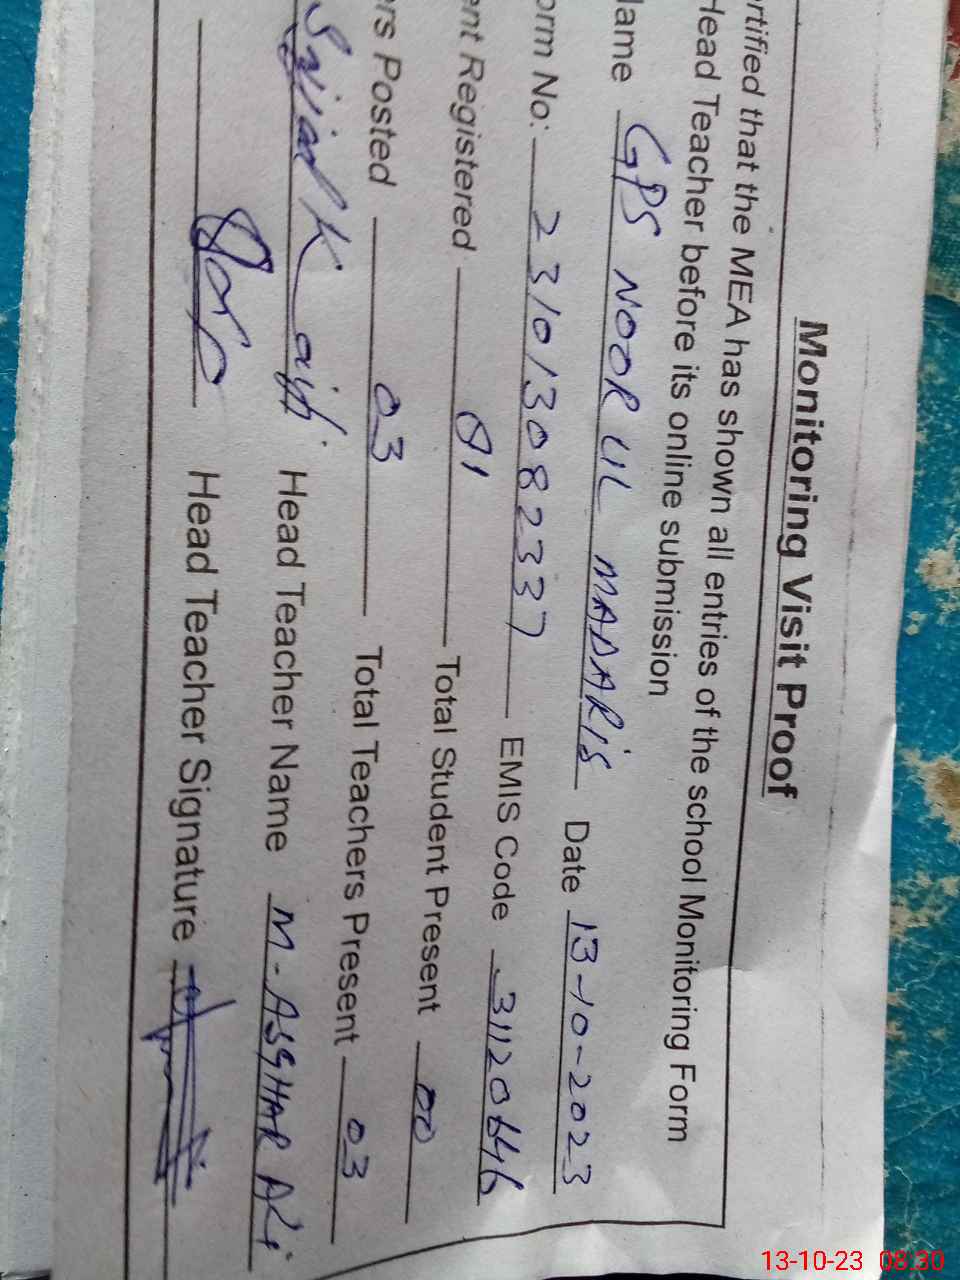 Monitoring Visit Proof
ertified that the MEA has shown all entries of the school Monitoring Form
Head Teacher before its online submission
Name GPS NOOR UL MADARIS Date 13-10-2023
orm No: 231013082337 EMIS Code 31120646
ent Registered 01 Total Student Present 00
ers Posted 03 Total Teachers Present 03
Head Teacher Name M-ASGHAR ALi
Head Teacher Signature
13-10-23 08:30